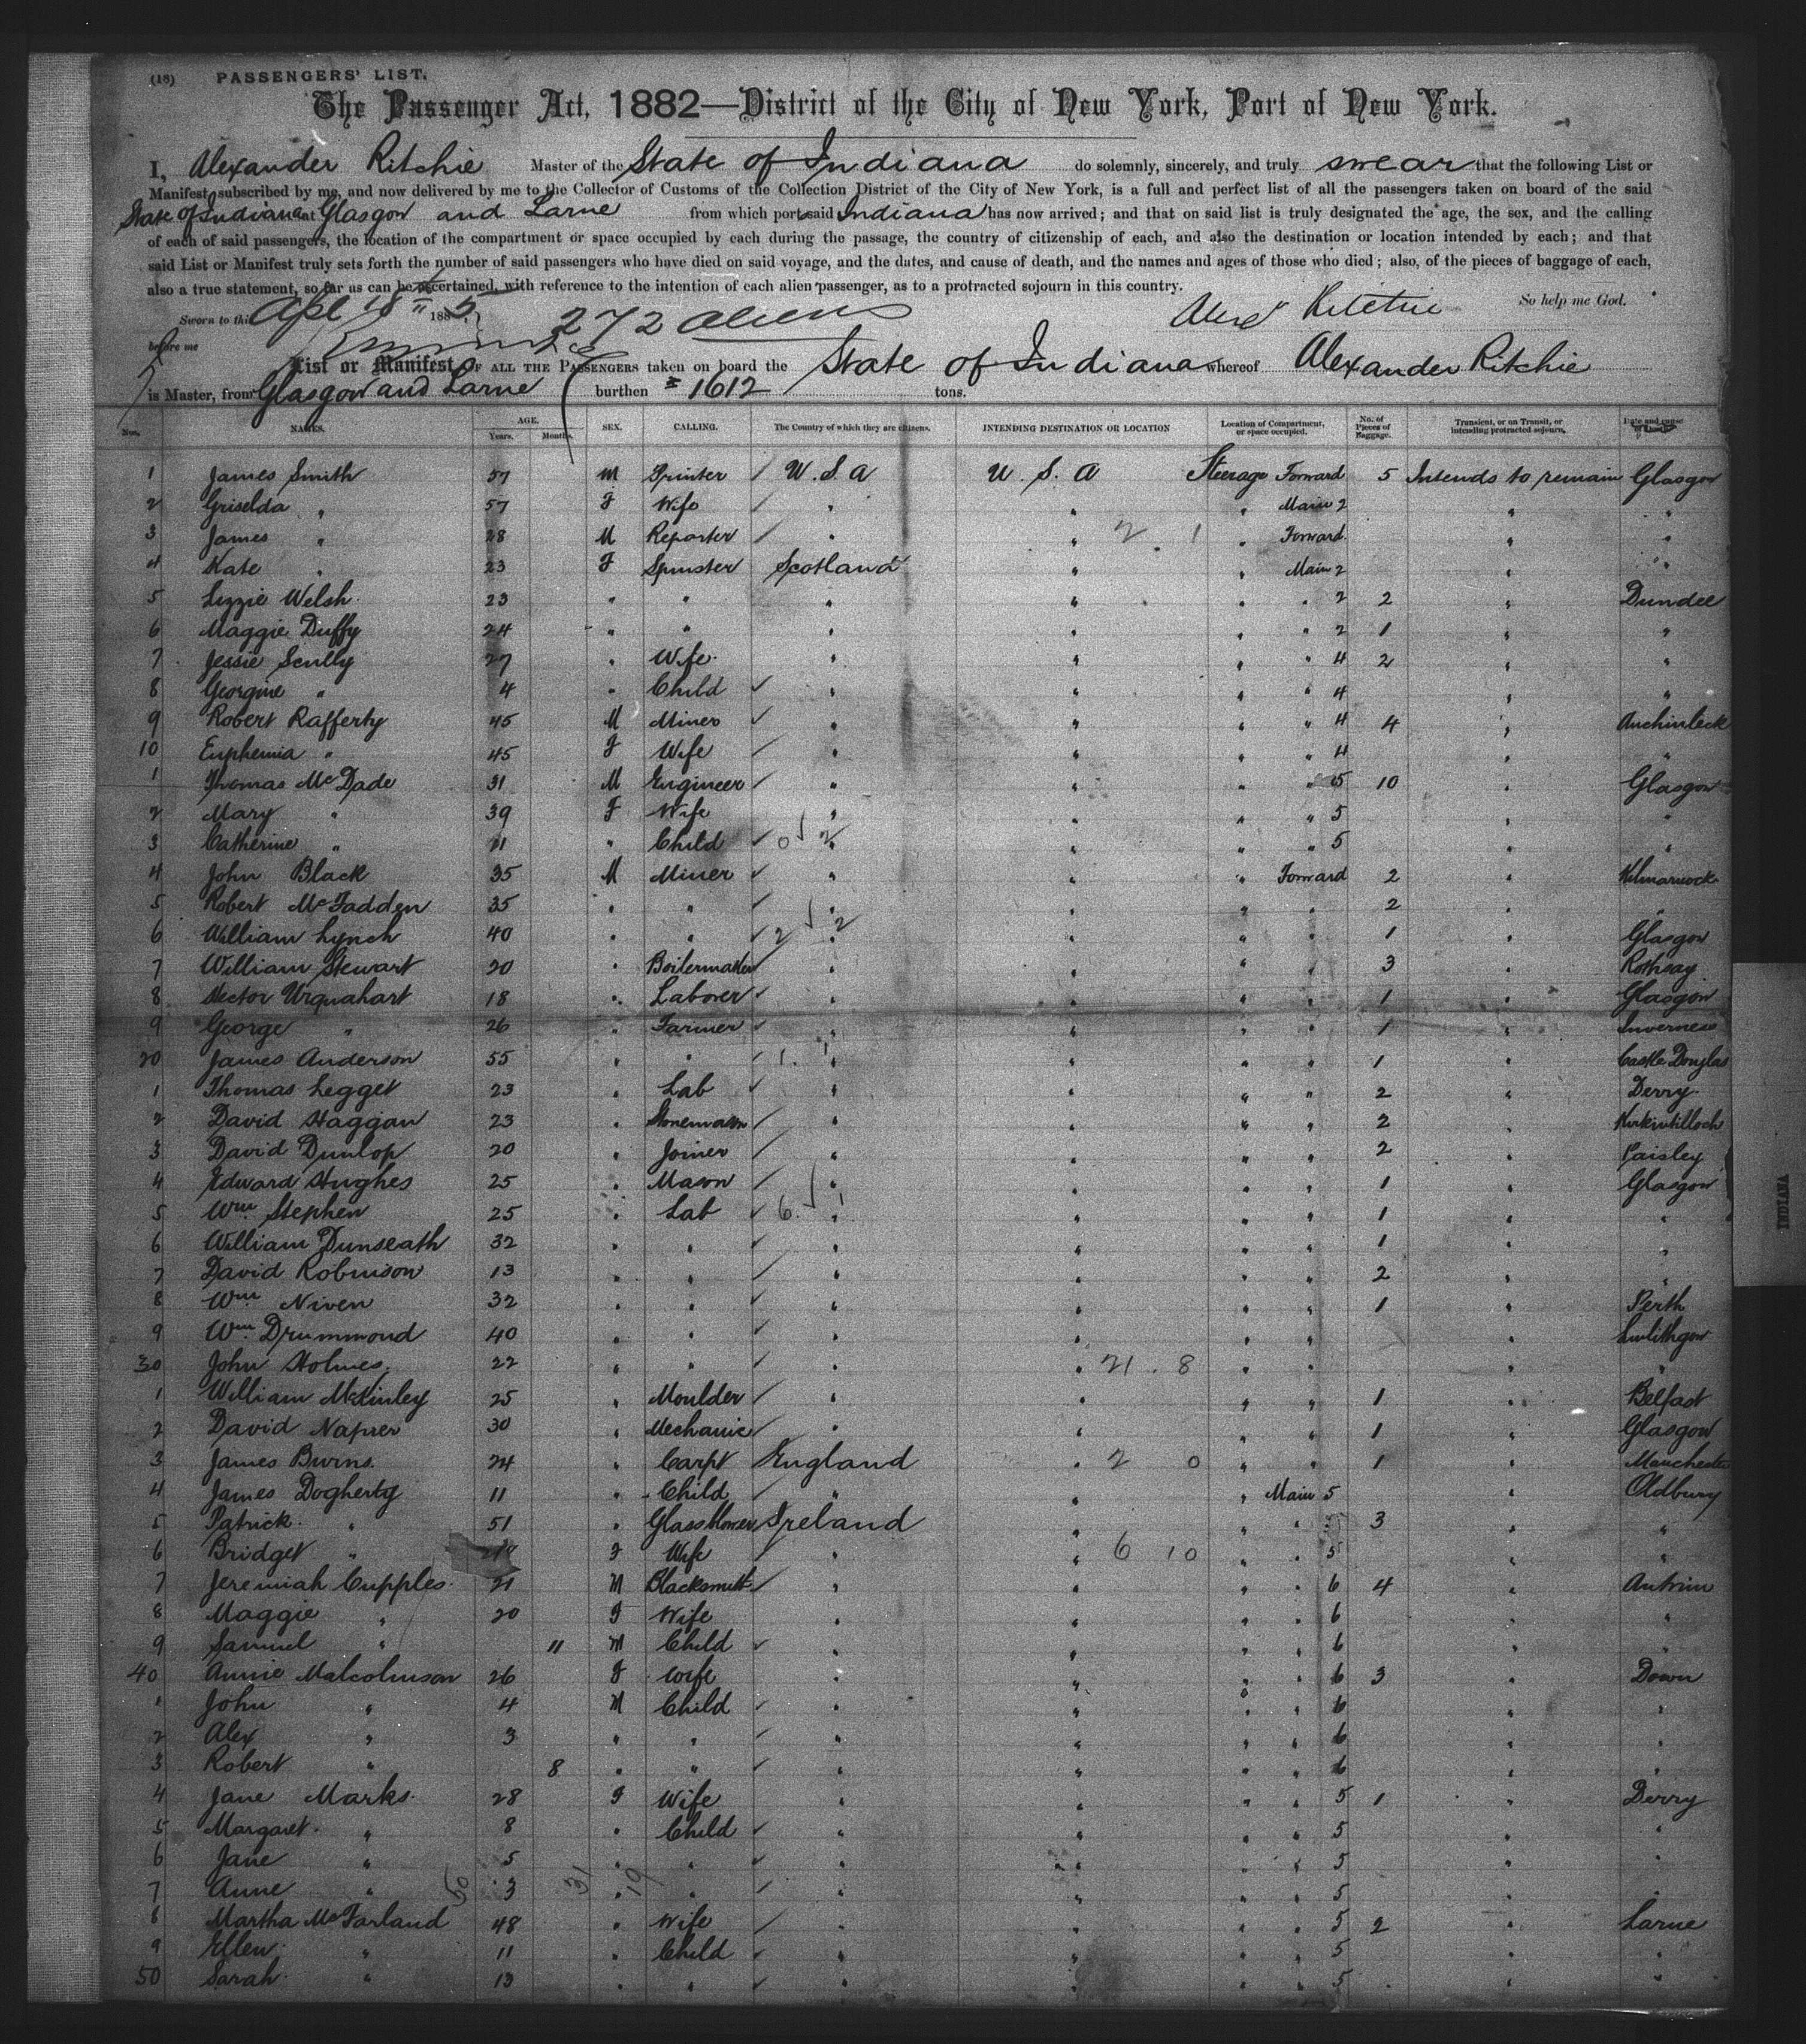 (18) PASSENGERS' LIST.
The Passenger Act, 1882—District of the City of New York, Port of New York.
I, Alexander Ritchie Master of the State of Indiana do solemnly, sincerely, and truly swear that the following List or
Manifest, subscribed by me, and now delivered by me to the Collector of Customs of the Collection District of the City of New York, is a full and perfect list of all the passengers taken on board of the said
State of Indiana at Glasgow and Larne from which port said Indiana has now arrived; and that on said list is truly designated the age, the sex, and the calling
of each of said passengers, the location of the compartment or space occupied by each during the passage, the country of citizenship of each, and also the destination or location intended by each; and that
said List or Manifest truly sets forth the number of said passengers who have died on said voyage, and the dates, and cause of death, and the names and ages of those who died; also, of the pieces of baggage of each,
also a true statement, so far us can be ascertained, with reference to the intention of each alien passenger, as to a protracted sojourn in this country.
So help me God.
Sworn to this Apl 18 1885 272 aliens Alexr Ritchie
before me
List or Manifest OF ALL THE PASSENGERS taken on board the State of Indiana whereof Alexander Ritchie
is Master, from Glasgow and Larne burthen 1612 tons.
Nos. NAMES. AGE. Years. Months. SEX. CALLING. The Country of which they are citizens. INTENDING DESTINATION OR LOCATION Location of Compartment, or space occupied. No. of Pieces of Baggage. Transient, or on Transit, or intending protracted sojourn. Date and cause
1 James Smith 57 M Printer U.S.A U.S.A Steerage Forward 5 Intends to remain Glasgow
2 Griselda " 57 F Wife " " " Main 2 " "
3 James " 28 M Reporter " " 2 . 1 " Forward " "
4 Kate " 23 F Spinster Scotland " " Main 2 " "
5 Lizzie Welsh 23 " " " " " " 2 2 " Dundee
6 Maggie Duffy 24 " " " " " " 2 1 " "
7 Jessie Scully 27 " Wife " " " " 4 2 " "
8 Georgine " 4 " Child " " " " 4 " "
9 Robert Rafferty 45 M Miner " " " " 4 4 " Auchinleck
10 Euphemia " 45 F Wife " " " " 4 " "
1 Thomas McDade 31 M Engineer " " " " 5 10 " Glasgow
2 Mary " 39 F Wife " " " " 5 " "
3 Catherine " 11 " Child 0 2 " " " " 5 " "
4 John Black 35 M Miner " " " Forward 2 " Kilmarnock
5 Robert McFadden 35 " " " " " " 2 " "
6 William Lynch 40 " " 2 2 " " " " 1 " Glasgow
7 William Stewart 20 " Boilermaker " " " " 3 " Rothsay
8 Hector Urquahart 18 " Laborer " " " " 1 " Glasgow
9 George " 26 " Farmer " " " " 1 " Inverness
20 James Anderson 55 " " 1 . 1 " " " " 1 " Castle Douglas
1 Thomas Legget 23 " Lab " " " " 2 " Derry
2 David Haggan 23 " Stonemason " " " " 2 " Kirkintilloch
3 David Dunlop 20 " Joiner " " " " 2 " Paisley
4 Edward Hughes 25 " Mason " " " " 1 " Glasgow
5 Wm Stephen 25 " Lab 6 . 1 " " " " 1 " "
6 William Dunseath 32 " " " " " " 1 " "
7 David Robinson 13 " " " " " " 2 " "
8 Wm Niven 32 " " " " " " 1 " Perth
9 Wm Drummond 40 " " " " " " " Linlithgow
30 John Holmes 22 " " " " 21 . 8 " " " "
1 William McKinley 25 " Moulder " " " " 1 " Belfast
2 David Napier 30 " Mechanic " " " " 1 " Glasgow
3 James Burns 24 " Carpt England " 2 0 " " 1 " Manchester
4 James Dogherty 11 " Child " " " Main 5 " Oldbury
5 Patrick " 51 " Glassblower Ireland " " " 3 " "
6 Bridget " F Wife " " 6 10 " " 5 " "
7 Jeremiah Cupples 21 M Blacksmith " " " " 6 4 " Antrim
8 Maggie " 20 F Wife " " " " 6 " "
9 Samuel " 11 M Child " " " " 6 " "
40 Annie Malcolmson 26 F Wife " " " " 6 3 " Down
1 John " 4 M Child " " " " 6 " "
2 Alex " 3 " " " " " " 6 " "
3 Robert " 8 " " " " " " 6 " "
4 Jane Marks 28 F Wife " " " " 5 1 " Derry
5 Margaret " 8 " Child " " " " 5 " "
6 Jane " 5 " " " " " " 5 " "
7 Anne " 50 3 31 " 19 " " " " " 5 " "
8 Martha McFarland 48 " Wife " " " " 5 2 " Larne
9 Ellen " 11 " Child " " " " 5 " "
50 Sarah " 13 " " " " " " 5 " "
INDIANA